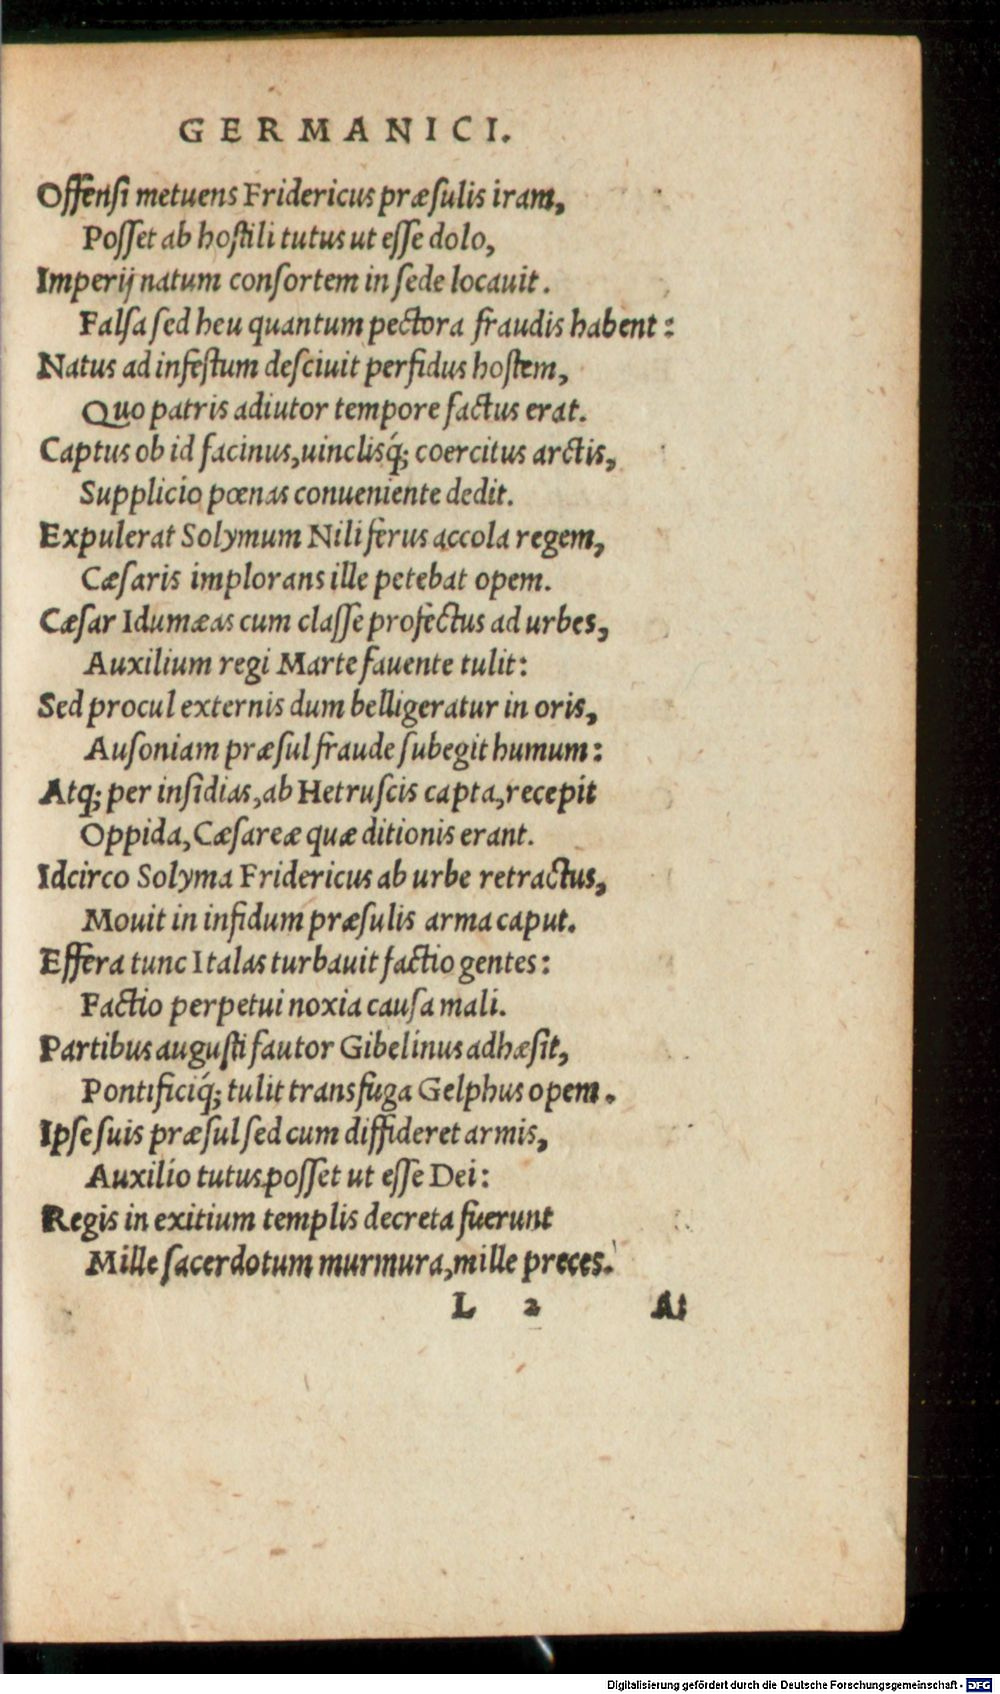 GERMANICI.
Offensi metuens Fridericus præsulis iram,
Posset ab hostili tutus ut esse dolo,
Imperij natum consortem in sede locauit.
Falsa sed heu quantum pectora fraudis habent:
Natus ad infestum desciuit perfidus hostem,
Quo patris adiutor tempore factus erat.
Captus ob id facinus, uinclisq́; coercitus arctis,
Supplicio pœnas conueniente dedit.
Expulerat Solymum Nili ferus accola regem,
Cæsaris implorans ille petebat opem.
Cæsar Idumæas cum classe profectus ad urbes,
Auxilium regi Marte fauente tulit:
Sed procul externis dum belligeratur in oris,
Ausoniam præsul fraude subegit humum:
Atq; per insidias, ab Hetruscis capta, recepit
Oppida, Cæsareæ quæ ditionis erant.
Idcirco Solyma Fridericus ab urbe retractus,
Mouit in infidum præsulis arma caput.
Effera tunc Italas turbauit factio gentes:
Factio perpetui noxia causa mali.
Partibus augusti fautor Gibelinus adhæsit,
Pontificiq́; tulit transfuga Gelphus opem.
Ipse suis præsul sed cum diffideret armis,
Auxilio tutus posset ut esse Dei:
Regis in exitium templis decreta fuerunt
Mille sacerdotum murmura, mille preces.
L 2 At
Digitalisierung gefördert durch die Deutsche Forschungsgemeinschaft - DFG